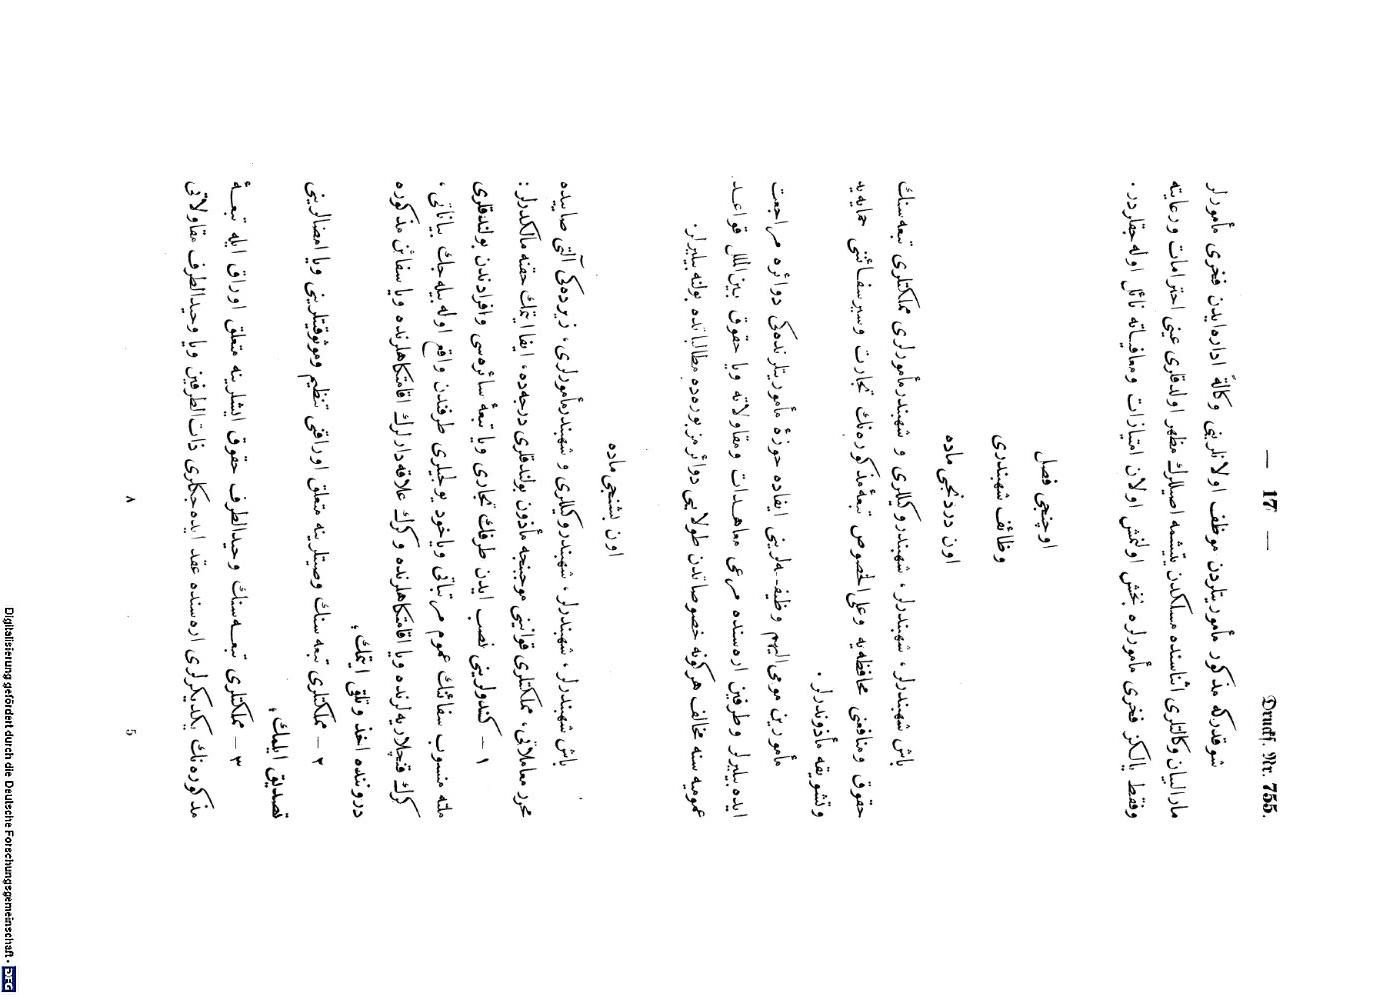 — 17 —
Drucks. Nr. 755.
شوقدركه مذكور مأموريتلردن موظف اولانلرينى وكالةً اداره ايدن فخرى مأمورلر
مارالبيان وكالتلرى اثناسنده مسلكدن يتشمه اصيللرك مظهر اولدقلرى عينى احترامات ورعايته
وفقط يالكز فخرى مأمورلره بخش اولنمش اولان امتيازات ومعافياته نائل اوله جقلردر.
اوچنجى فصل
وظائف شهبندرى
اون دردنجى ماده
باش شهبندرلر، شهبندرلر، شهبندر وكيللرى و شهبندر مأمورلرى مملكتلرى تبعه سنك
حقوق ومنافعنى محافظه يه وعلى الخصوص تبعۀ مذكوره نك تجارت وسيرسفائنى حمايه يه
وتشويقه مأذوندرلر.
مأمورين مومى اليهم وظيفه لرينى ايفاده حوزۀ مأموريتلرنده كى دوائره مراجعت
ايده بيليرلر وطرفين اره سنده مرعى معاهدات ومقاولاته ويا حقوق بين الملل قواعد
عموميه سنه مخالف هركونه خصوصاتدن طولايى دوائر مزبوره ده مطالباتده بولنه بيليرلر.
اون بشنجى ماده
باش شهبندرلر، شهبندرلر، شهبندر وكيللرى و شهبندر مأمورلرى، زيرده كى آلتى صاييده
محرر معاملاتى، مملكتلرى قوانينى موجبنجه مأذون بولندقلرى درجه ده، ايفا ايتمك حقنه مالكدرلر:
١ — كندولرينى نصب ايدن طرفك تجارى ويا تبعۀ سائره سى وافرادندن بولندقلرى
ملته منسوب سفائنك عموم مرتباتى وياخود يولجيلرى طرفندن واقع اوله بيله جك بياناتى،
كرك قنچلاريه لرنده ويا اقامتكاهلرنده و كرك علاقه دارلرك اقامتكاهلرنده ويا سفائن مذكوره
دروننده اخذ وتلقى ايتمك؛
٢ — مملكتلرى تبعه سنك وصيتلرينه متعلق اوراقى تنظيم وموثوقيتلرينى ويا امضالرينى
تصديق ايلمك؛
٣ — مملكتلرى تبعه سنك وحيدالطرف حقوق ايشلرينه متعلق اوراق ايله تبعۀ
مذكوره نك يكديكرلرى اره سنده عقد ايده جكلرى ذات الطرفين ويا وحيدالطرف مقاولاتى
٨
5
Digitalisierung gefördert durch die Deutsche Forschungsgemeinschaft - DFG